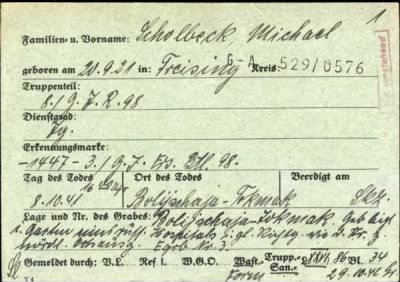 1
Familien- u. Vorname: Scholbeck Michael
geboren am 20.9.21 in: Freising Kreis:
G-A 529/0576
Truppenteil:
8./ G. J. R. 98
Dienstgrad:
Jg.
Erkennungsmarke:
-1447- 3./ G. J. Ers. Btl. 98.
Tag des Todes Ort des Todes Beerdigt am
8.10.41 16 Uhr Bolijschaja-Tokmak
Lage und Nr. des Grabes: Bolijschaja-Tokmak
i. Garten Hospitals
nördl. Ortsausg. Grab Nr. 3.
Gemeldet durch: V.L. Ref i. W.G.O. Wast- Trupp- San.- 86 Bl. 34
Form 29.10.42